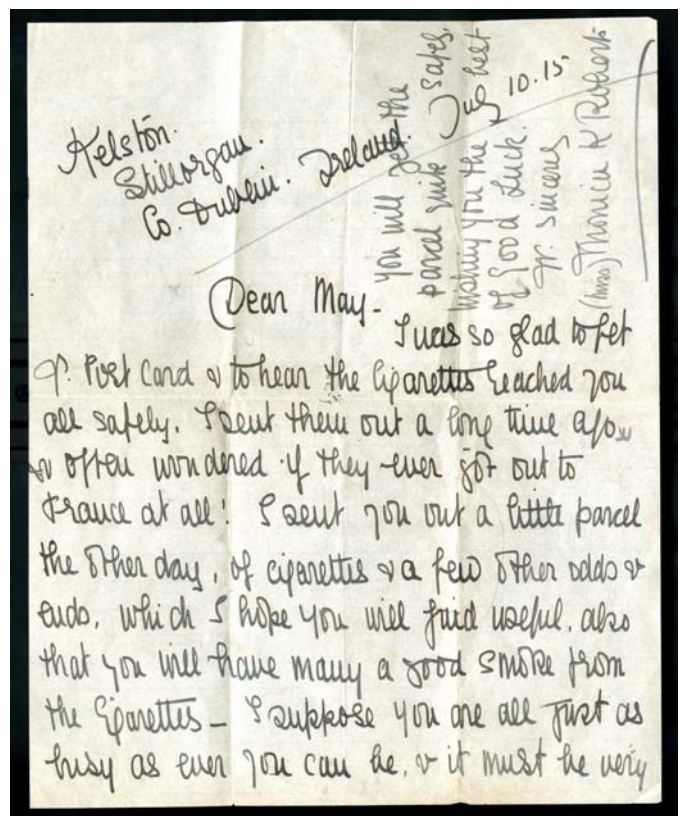 Kelston.
Stillorgan.
Co. Dublin. Ireland.
10.15
Dear May -
I was so glad to get
yr. Post Card & to hear the Cigarettes reached you
all safely. I sent them out a long time ago
& often wondered if they ever got out to
France at all! I sent you out a little parcel
the other day, of cigarettes & a few other odds &
ends, which I hope you will find useful. also
that you will have many a good smoke from
the Cigarettes - I suppose you are all just as
busy as ever you can be, & it must be very
You will get the
parcel quite safely.
Wishing you the very best
of Good Luck.
Yr. sincerely
(Miss) Monica K Roberts